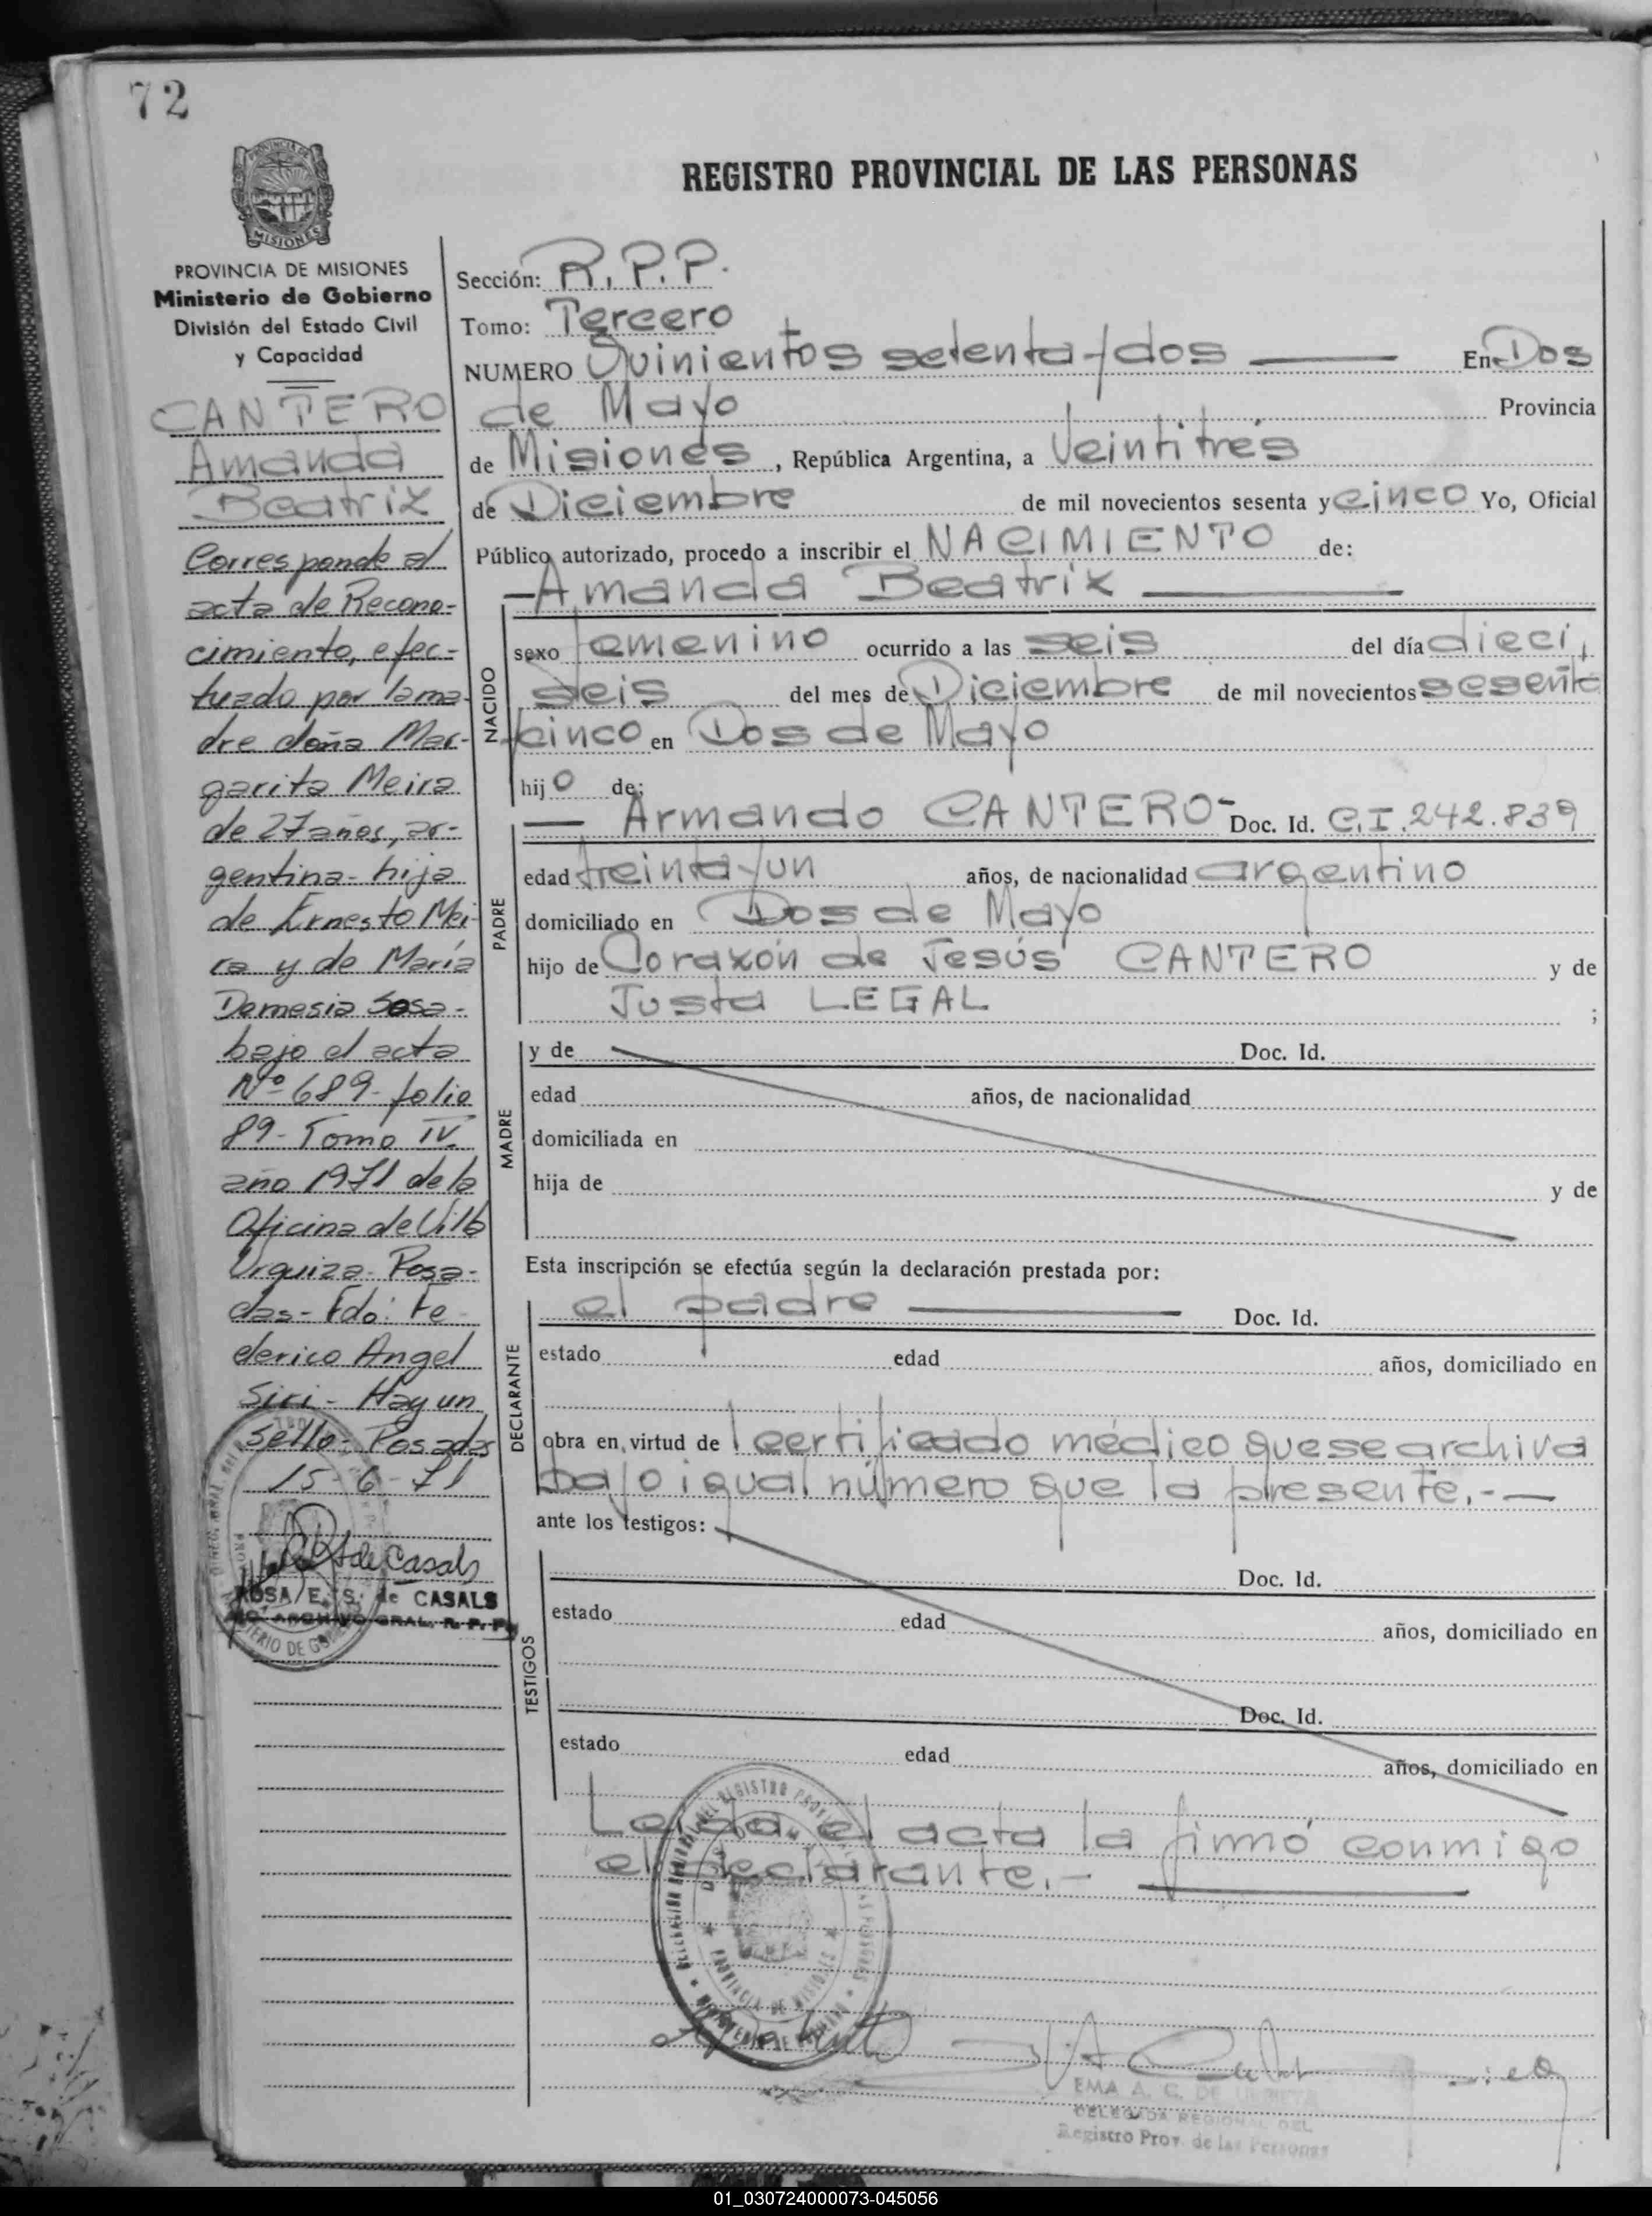 72
PROVINCIA DE MISIONES
REGISTRO PROVINCIAL DE LAS PERSONAS
PROVINCIA DE MISIONES
Ministerio de Gobierno
División del Estado Civil
y Capacidad
CANTERO
Amanda
Beatriz
Corresponde al
acta de Recono-
cimiento, efec-
tuado por la ma-
dre doña Mar-
garita Meira
de 27 años, ar-
gentina - hija
de Ernesto Mei-
ra y de María
Demesia Sosa -
bajo el acta
Nº 689 - folio
89 - Tomo IV
año 1971 de la
Oficina de Villa
Urquiza - Posa-
das - Fdo: Fe
derico Angel
Siri - Hay un
sello - Posadas
15 - 6 - 71
de Casals
ROSA E. S. de CASALS
ARCHIVO GRAL. R. P. P.
Sección: R.P.P.
Tomo: Tercero
NUMERO Quinientos setenta y dos En Dos
de Mayo Provincia
de Misiones, República Argentina, a Veintitrés
de Diciembre de mil novecientos sesenta y cinco Yo, Oficial
Público autorizado, procedo a inscribir el NACIMIENTO de:
-Amanda Beatrix
NACIDO
sexo femenino ocurrido a las seis del día dieci,
seis del mes de Diciembre de mil novecientos sesenta
cinco en Dos de Mayo
hijo de:
PADRE
Armando CANTERO- Doc. Id. C.I. 242.839
edad treinta y un años, de nacionalidad argentino
domiciliado en Dos de Mayo
hijo de Corazón de Jesús CANTERO y de
Justa LEGAL ;
MADRE
y de Doc. Id.
edad años, de nacionalidad
domiciliada en
hija de y de
Esta inscripción se efectúa según la declaración prestada por:
DECLARANTE
el padre Doc. Id.
estado edad años, domiciliado en
obra en virtud de l certificado médico que se archiva
bajo igual número que la presente.-
ante los testigos:
TESTIGOS
Doc. Id.
estado edad años, domiciliado en
Doc. Id.
estado edad años, domiciliado en
Leída el acta la firmó conmigo
el declarante.-
PROVINCIA DE MISIONES
EMA A. C. DE
DELEGADA REGIONAL DEL
Registro Prov. de las Personas
01_030724000073-045056